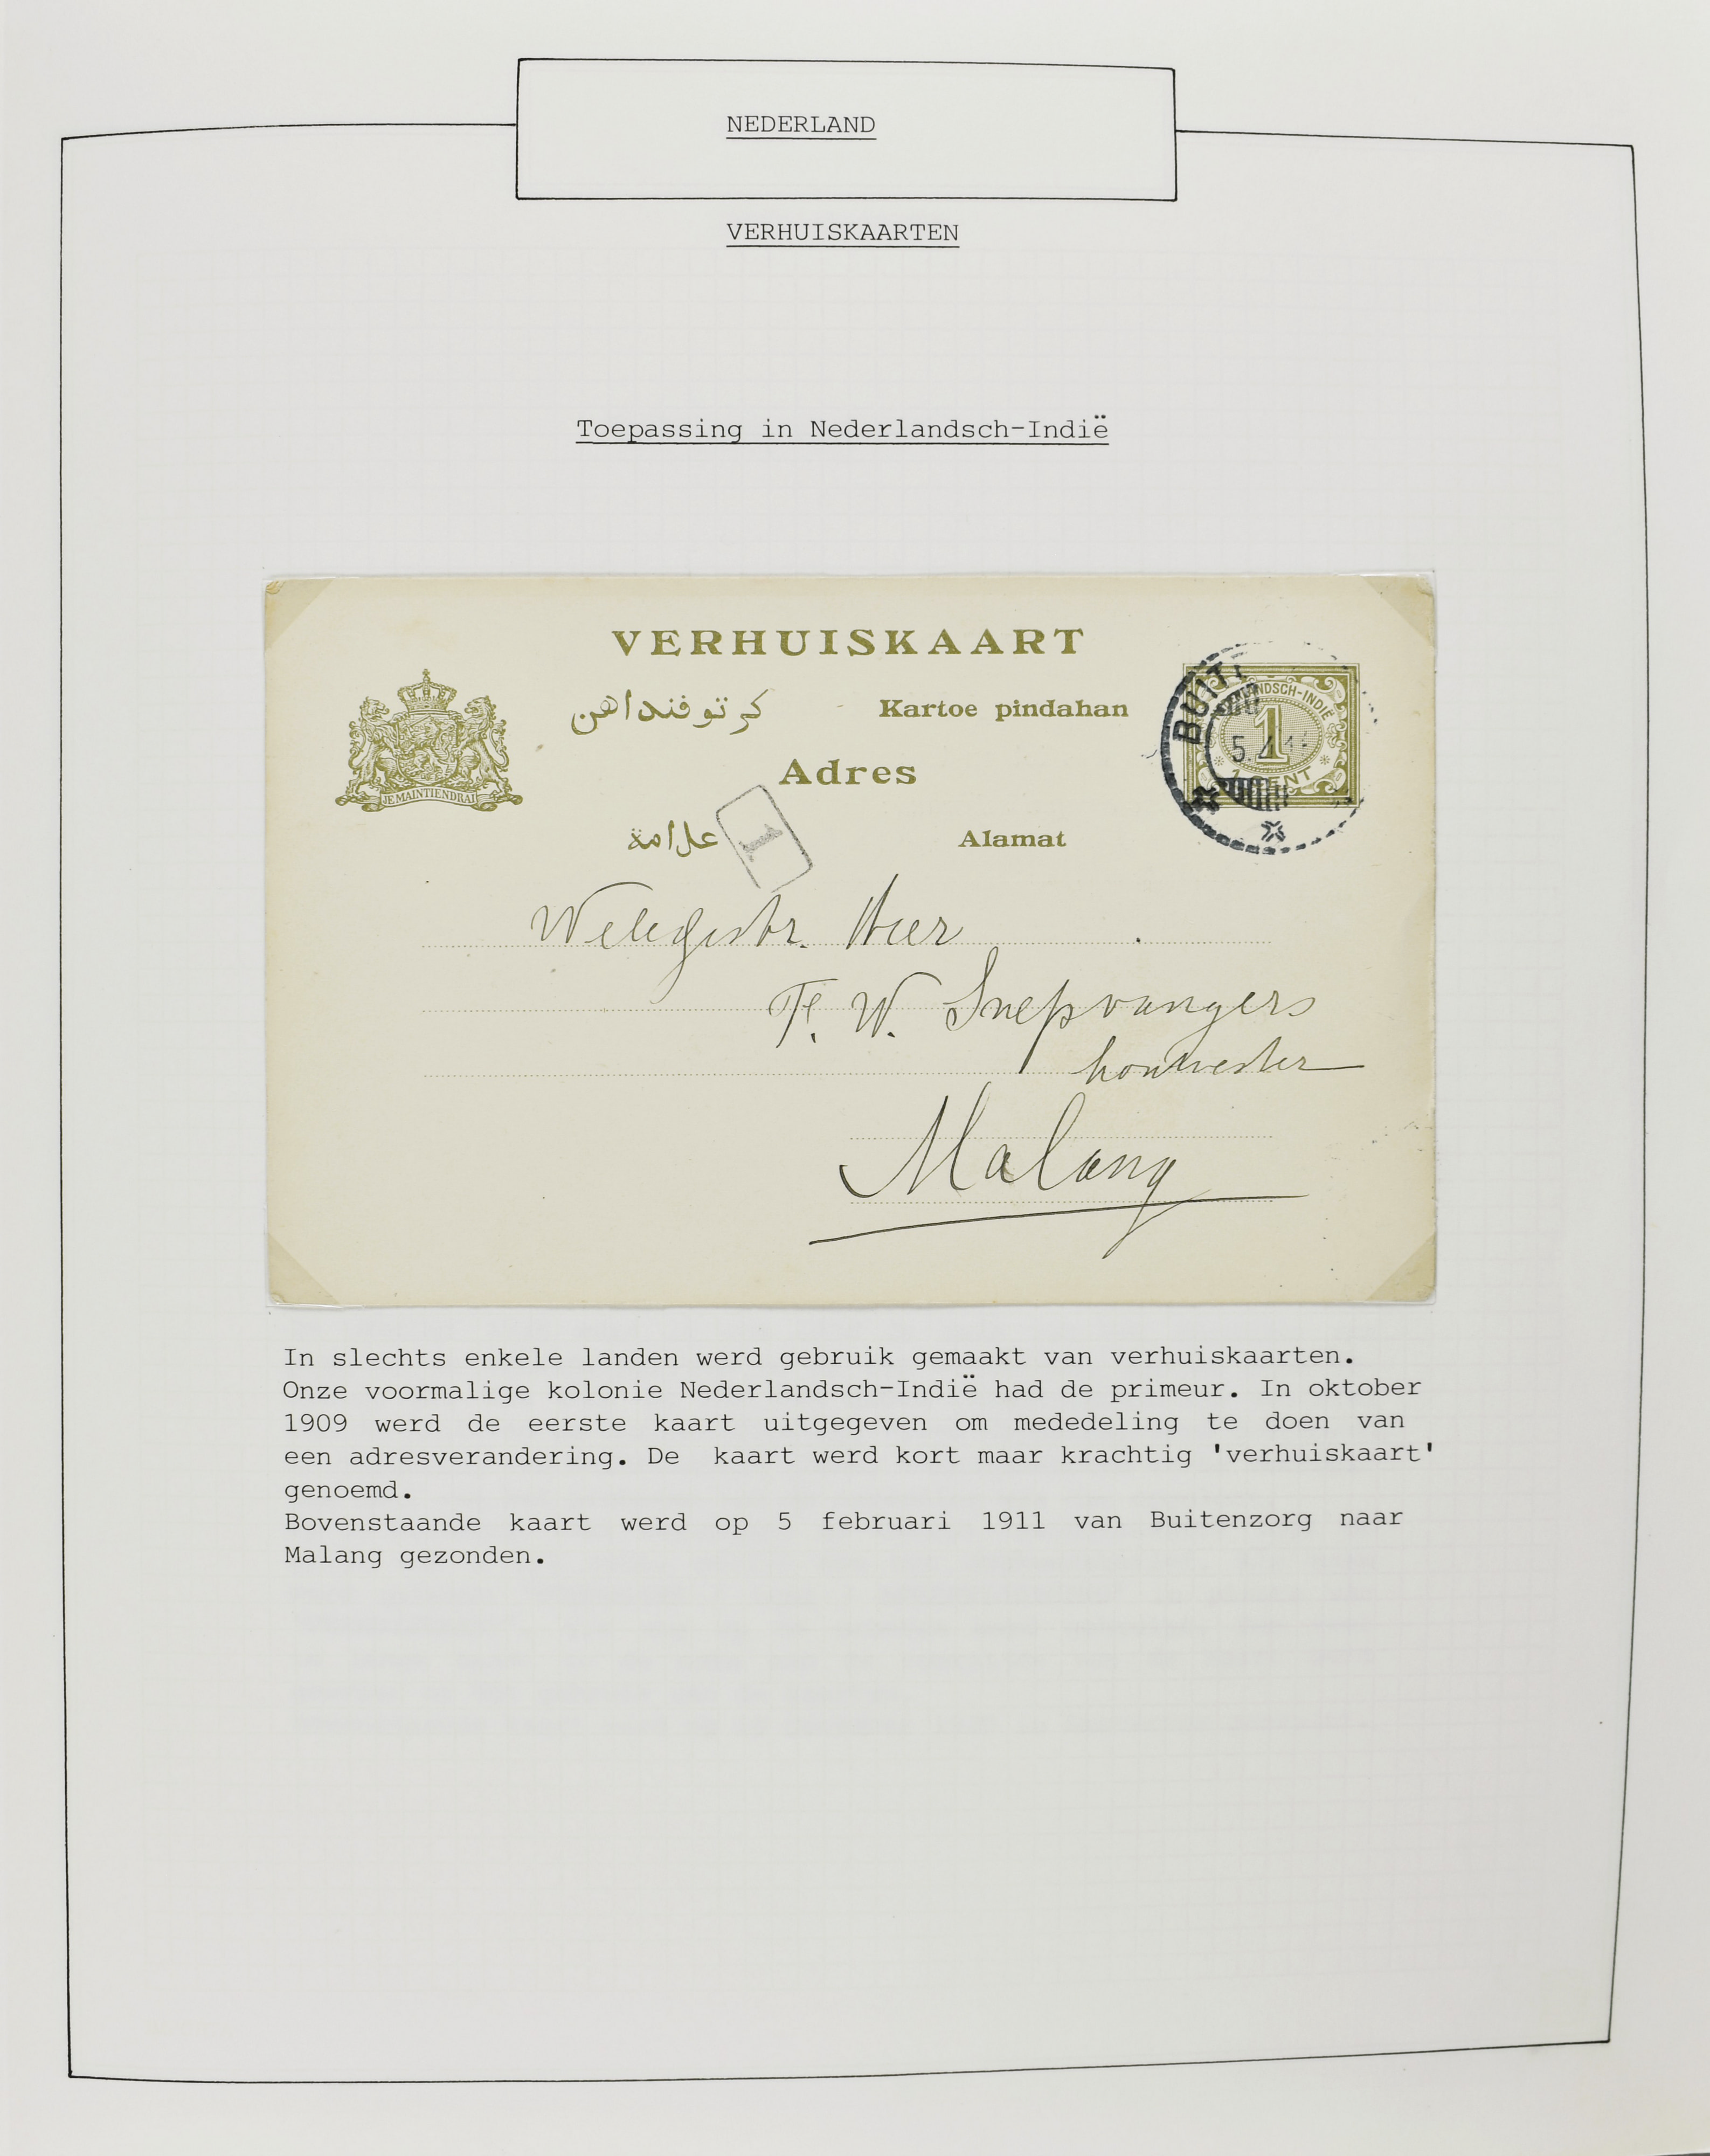 NEDERLAND
VERHUISKAARTEN
Toepassing in Nederlandsch-Indië
VERHUISKAART
كرتو فنداهن
Kartoe pindahan
Adres
علامة
Alamat
JE MAINTIENDRAI
BUIT
NDSCH-INDIË
1
5.
CENT
1
Weledgestr. Heer
F. W. Snepvangers
houtvester
Malang
In slechts enkele landen werd gebruik gemaakt van verhuiskaarten.
Onze voormalige kolonie Nederlandsch-Indië had de primeur. In oktober
1909 werd de eerste kaart uitgegeven om mededeling te doen van
een adresverandering. De kaart werd kort maar krachtig 'verhuiskaart'
genoemd.
Bovenstaande kaart werd op 5 februari 1911 van Buitenzorg naar
Malang gezonden.